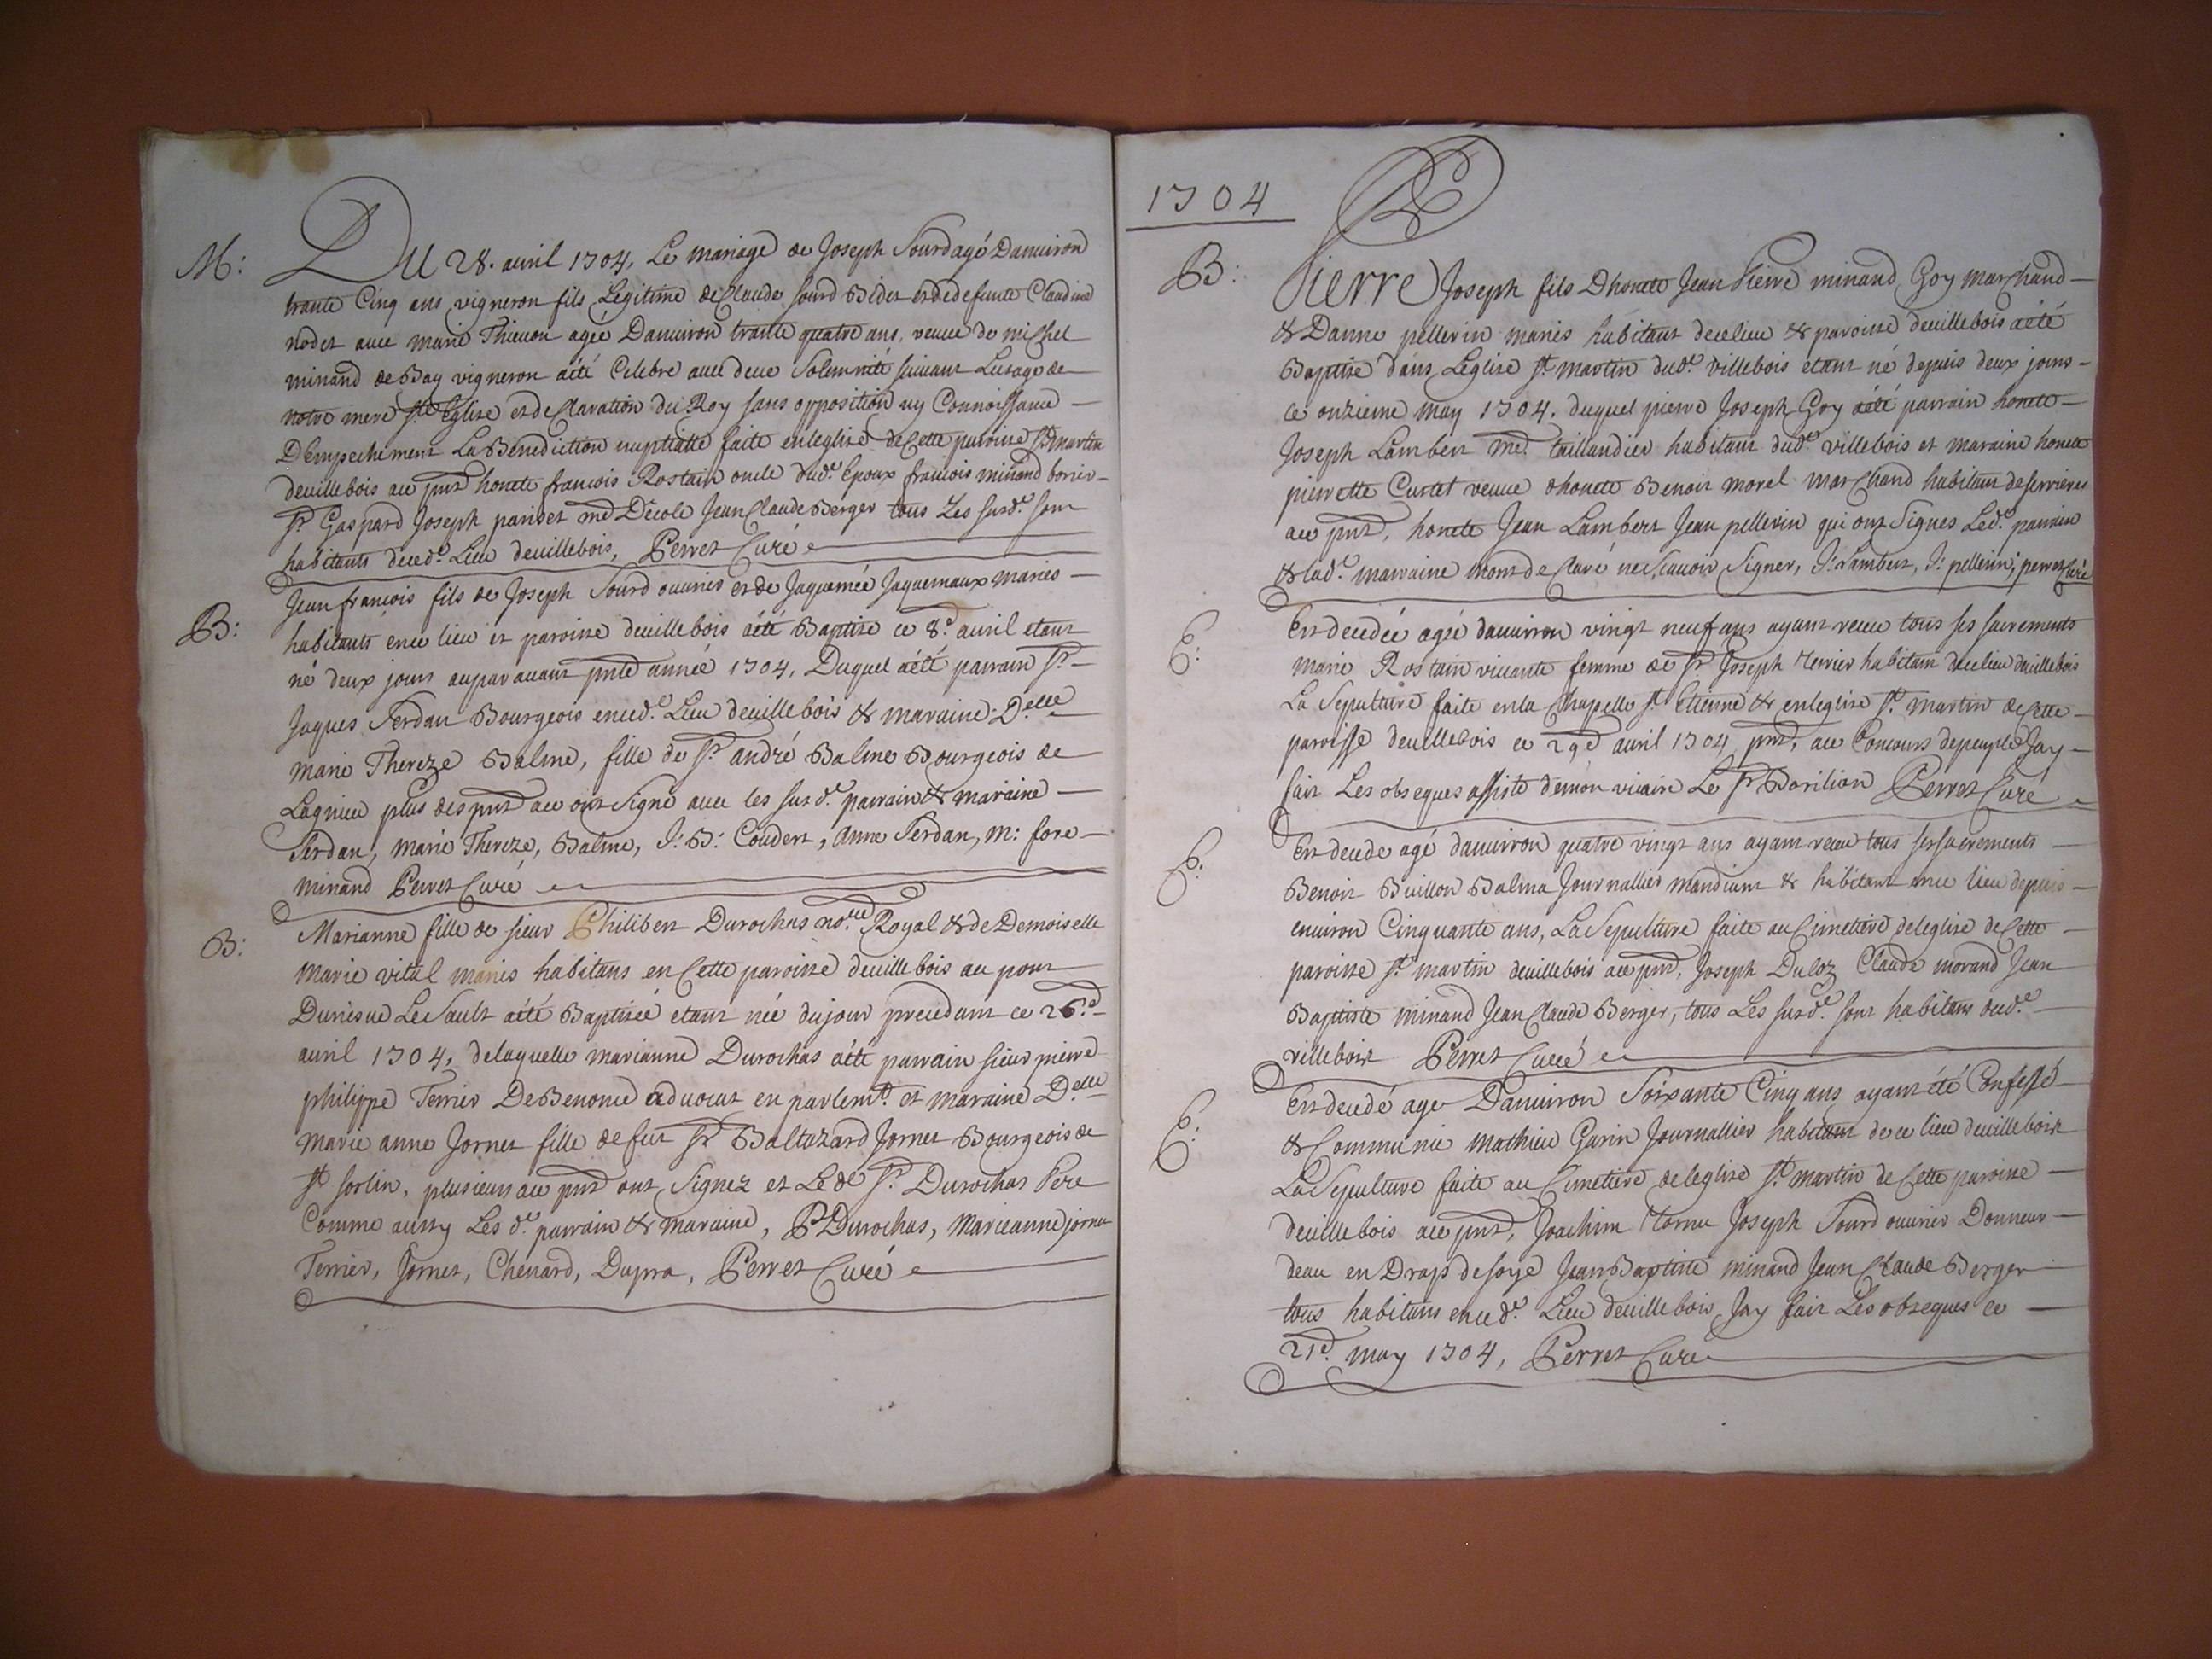 M: Du 28. auril 1704, Le mariage de Joseph Sourd agé Dauuiron
trante Cinq ans vigneron fils Legitime de Claude Sourd Bidet et de defunte Claudine
nodet auec marie Thieuon agée Dauuiron trante quatre ans, veuue de miChel
minand de Bay vigneron aété Celebré auec deue Solemnité suiuant Lusage de
notre mere Ste Eglise et deClaration du Roy sans opposition ny Connoissance
DEmpechement La Benediction nuptialle faite en leglise de Cette paroisse St martin
deuillebois au pnt honete francois Rostain oncle dud.t Epoux francois minand borier
Sr Gaspard Joseph pariset md Décole Jean Claude Berger tous Les susd.t sont
habitants dced.t Lieu deuillebois, Perret Curé
B: Jean francois fils de Joseph Sourd ouurier et de Jaquemée Jaquemaux mariés
habitants ence lieu et paroisse deuillebois aété Baptisé ce 8.e auril etant
né deux jours auparauant pnte année 1704, Duquel aété parrain Sr
Jaques Serdan Bourgeois enced.t Lieu deuillebois & maraine D.elle
marie Thereze Balme, fille de Sr andré Balme Bourgeois de
Lagnieu plus des pnts au ont Signé auec les sus d.t parrain & maraine
Serdan, marie Thereze, Balme, J: B: Coudert, Anne Serdan, m: fore
minand Perret Curé
B: Marianne fille de sieur Philibert Durochas no.re Royal & de Demoiselle
Marie vital mariés habitans en Cette paroisse deuillebois au pont
Dunesue LeSault aété Baptisée etant née dujour precedant ce 26.e
auril 1704, delaquelle marianne Durochas aété parrain sieur pierre
philippe Terrier DeBenonce aduocat en parlem.t et maraine D.elle
Marie anne Jornet fille de fut Sr Baltazard Jornet Bourgeois de
St sorlin, plusieurs au pnt ont Signez et Led.t Sr Durochas Pere
Comme aussy Les d.t parrain & maraine, P Durochas, Marieanne jornet
Terrier, Jornet, Chenard, Dupra, Perret Curé
1704
B: Pierre Joseph fils Dhonete Jean Pierre minand Goy marChand
& Danne pellerin mariés habitant decelieu & paroisse deuillebois aété
Baptisé dans Leglise St martin dud.t villebois etant né depuis deux jours
ce onzieme may 1704. duquel pierre Joseph Goy aété parrain honete
Joseph Lambert md. taillandier habitant dud.t villebois et maraine honete
pierrette Curtet veuue dhonete Benoit morel marChand habitant deserrieres
au pnt, honete Jean Lambert Jean pellerin qui ont Signés Led.t parrain
& lad.t marraine mont deClaré ne Scauoir Signer, J: Lambert, J: pellerin, perret Curé
E: Est decedée agée dauuirron vingt neuf ans ayant receu tous ses sacrements
Marie Rostain viuante femme de Sr Joseph Terrier habitant decelieu deuillebois
La Sepulture faite enla Chapelle St Etienne & enleglise St martin deCette
paroisse deuillebois ce 29e auril 1704 pnt, au Concours depeuple Jay
fait Les obseques assisté demon vicaire Le Sr Barilion Perret Curé
E: Est decede agé dauuirron quatre vingt ans ayant receu tous ses sacrements
Benoit Buillon Balma Journallier mandiant & habitant ence lieu depuis
enuiron Cinquante ans, La Sepulture faite au Cimetiere deleglise deCette
paroisse St martin deuillebois au pnt, Joseph Duloz Claude morand Jean
Baptiste minand Jean Claude Berger, tous Les susd.t sont habitans dud.t
villebois Perret Curé
E: Est decedé age Dauuiron Soixante Cinq ans ayant été Confessé
& Communié mathieu Garin Journallier habitant dece lieu deuillebois
La Sepulture faite au Cimetiere deleglise St martin de Cette paroisse
deuillebois au pnt, Joachim Tornu Joseph Sourd ouurier Donneur
deau en Drap de soye Jean Baptiste minand Jean Claude Berger
tous habitans enced.t Lieu deuillebois, Jay fait Les obseques ce
21e. may 1704, Perret Curé